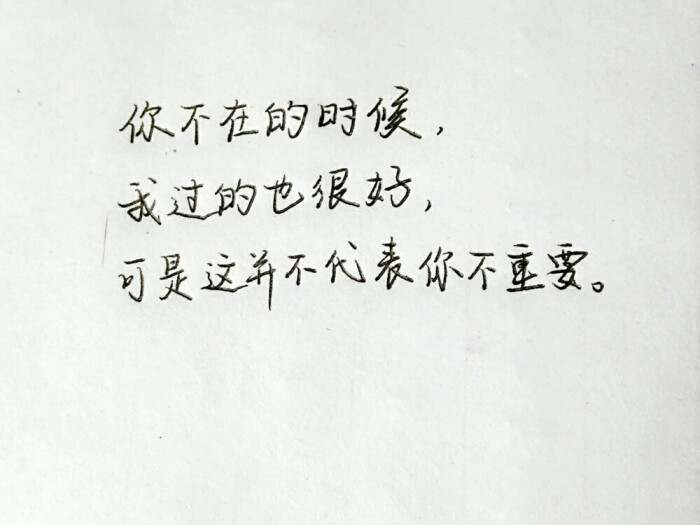 你不在的时候，
我过的也很好，
可是这并不代表你不重要。